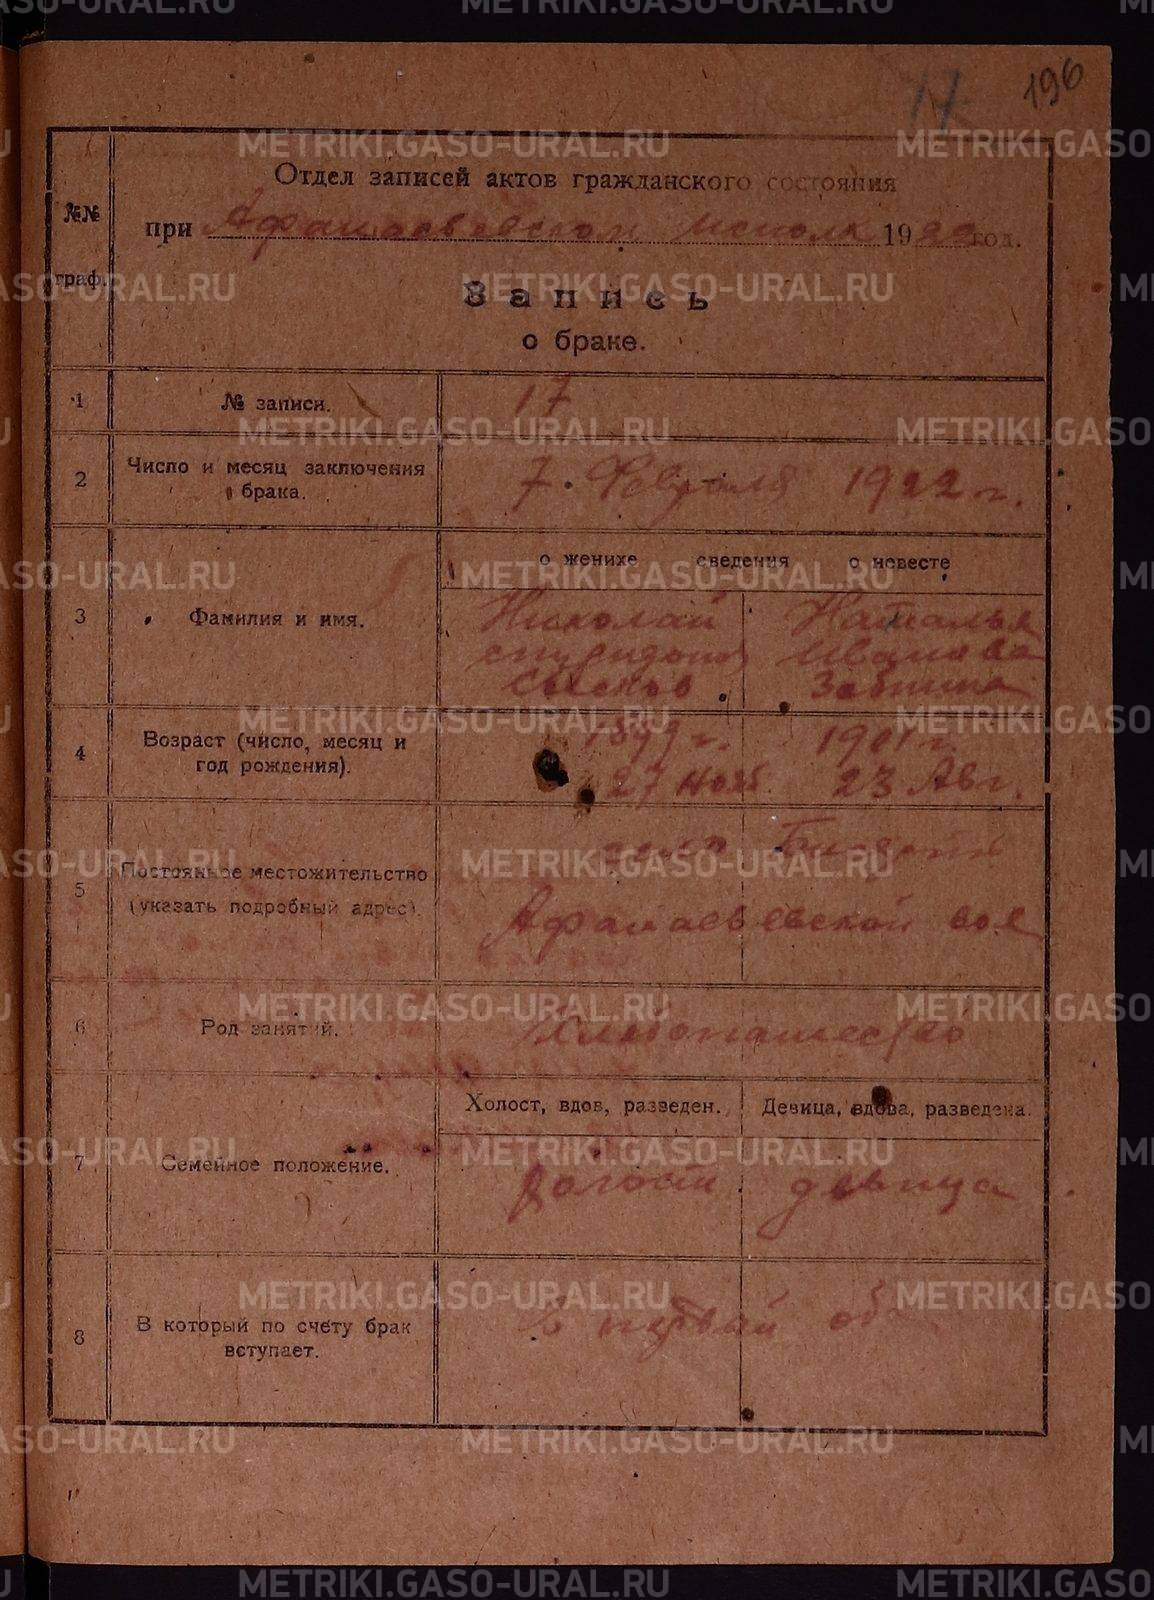 17 196
Отдел записей актов гражданского состояния
№№ граф.
при Афанасьевском исполк 1922 год.
Запись
о браке.
1 № записи. 17
2 Число и месяц заключения брака. 7 Февраля 1922 г.
о женихе сведения о невесте
3 Фамилия и имя.
Николай Наталья
Иванова
4 Возраст (число, месяц и год рождения).
1899 г. 1901 г.
27 нояб. 23 Авг.
5 Постоянное местожительство
(указать подробный адрес).
Афанасьевской вол
6 Род занятий. Хлебопашество
Холост, вдов, разведен. Девица, вдова, разведена.
7 Семейное положение. холост девица
8 В который по счету брак вступает. В первый об
METRIKI.GASO-URAL.RU